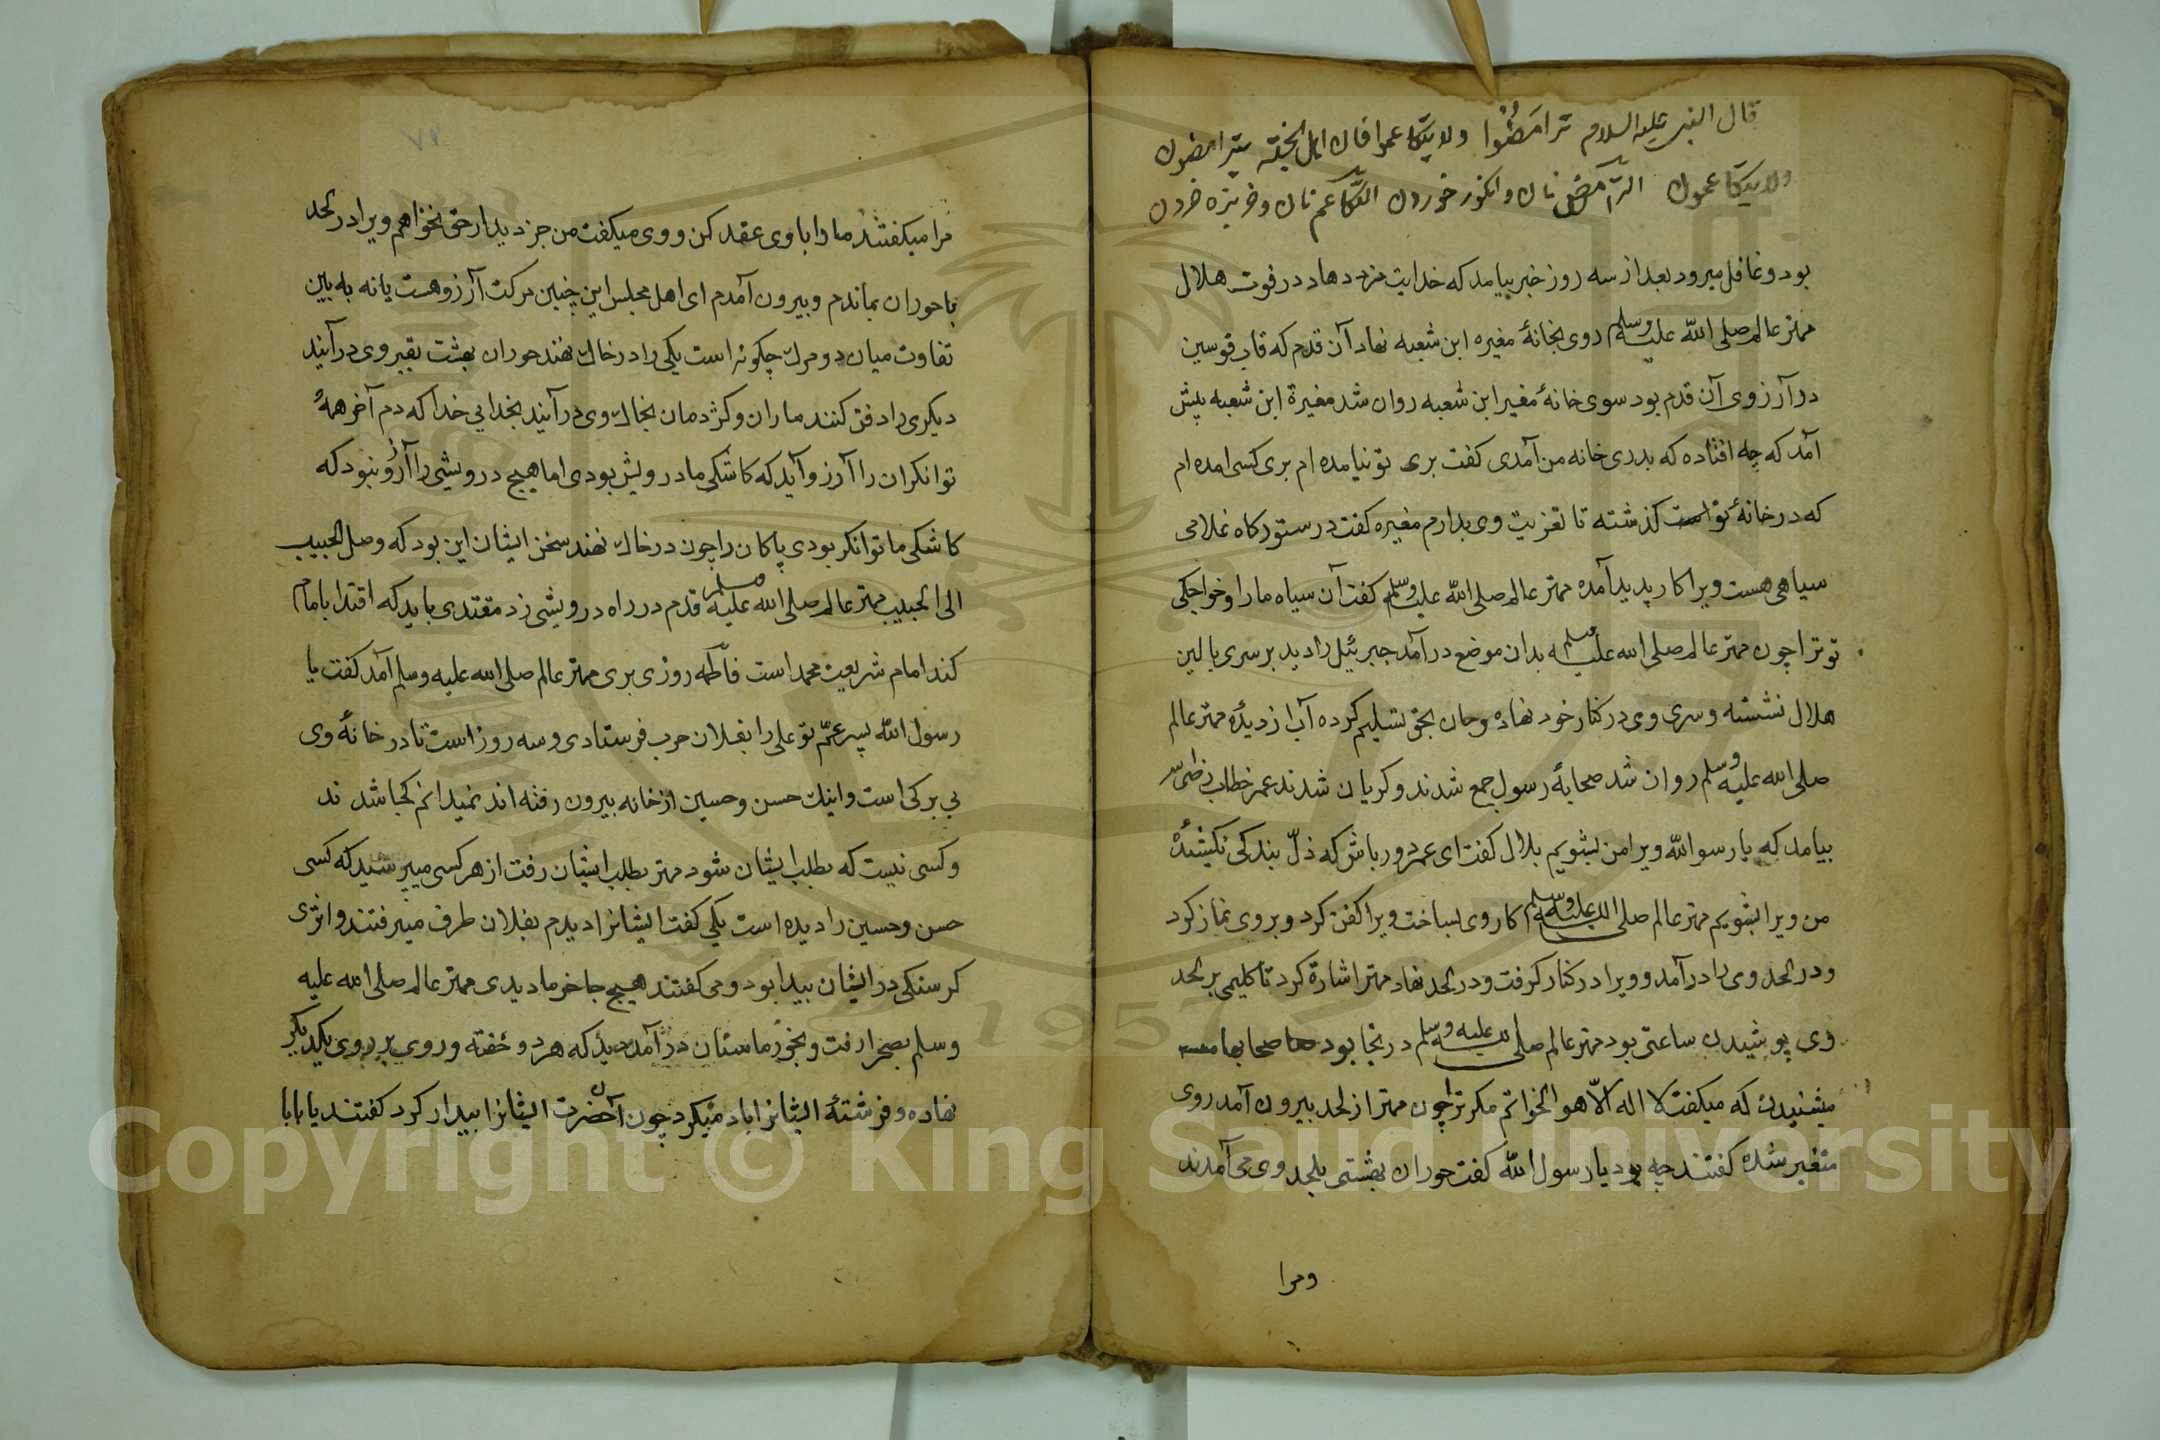 قال النبى عليه السلام ترامَضُوا ولا يتكاعموا فان اهل الجنّة يترامضون
ولا يتكاعمون الترامض نان و انكور خوردن التكاعم نان و خربزه خردن
بود و غافل ميرود بعد از سه روز خبر بيامد كه خدايت مزد دهاد در فوت هلال
مهتر عالم صلى اللّه عليه وسلم روى بخانهٔ مغيره ابن شعبه نهاد آن قدم كه قاب قوسين
در آرزوى آن قدم بود سوى خانهٔ مغير ابن شعبه روان شد مغيرة ابن شعبه پيش
آمد كه چه افتاده كه بدرى خانه من آمدى كفت برى تو نيامده ام برى كسى امده ام
كه در خانهٔ تو است كذشته تا تعزيت وى بدارم مغيره كفت در ستوركاه غلامى
سياهى هست ويرا كار پديد آمده مهتر عالم صلى اللّه عليه وسلم كفت آن سياه ما را و خواجكى
تو ترا چون مهتر عالم صلى الله عليه وسلم بدان موضع در آمد جبرئيل را ديد بر سرى بالين
هلال نشسته و سرى وى در كنار خود نهاده و جان بحق تسليم كرده آب از ديدهٔ مهتر عالم
صلى الله عليه وسلم روان شد صحابهٔ رسول جمع شدند و كريان شدند عمر خطاب رضى
بيامد كه يا رسو اللّه ويرا من بشويم بلال كفت اى عمر دور باش كه ذلّ بندكى نكشيدهٔ
من ويرا بشويم مهتر عالم صلى الله عليه وسلم كار وى بساخت ويرا كفن كرد و بروى نماز كرد
و در لحد وى را در آمد و ويرا در كنار كرفت و در لحد نهاد مهتر اشارة كرد تا كليمى بر لحد
وى پوشيدن ساعتى بود مهتر عالم صلى لله عليه وسلم در نجا بود صحابها
ميشنيدن كه ميكفت لا اله الّا هو الخواتم مكر ترا چون مهتر از لحد بيرون آمد روى
متغير شده كفتند چه بود يا رسول اللّه كفت حوران بهشتى بلحد وى مى آمدند
ومرا
٧٩
مرا ميكفتند ما را با وى عقد كن و وى ميكفت من جز ديدار حق نخواهم ويرا در لحد
با حوران بماندم و بيرون آمدم اى اهل مجلس اين چنين مركت آرزو هست يا نه به بين
تفاوت ميان دو مرك چكونه است يكى را در خاك نهند حوران بهشت بقبر وى در آيند
ديكرى را دفن كنند ماران و كژدمان بخاك وى در آيند بخدايى خدا كه دم آخر همهٔ
توانكران را آرزو آيد كه كاشكى ما درويش بودى اما هيچ درويشى را آرزو نبود كه
كاشكى ما توانكر بودى پاكان را چون در خاك نهند سخن ايشان اين بود كه وصل الحبيب
الى الحبيب مهتر عالم صلى الله عليه وسلم قدم در راه درويشى زد مقتدى بايد كه اقتدا بامام
كند امام شريعت محمد است فاطمه روزى برى مهتر عالم صلى الله عليه وسلم آمد كفت يا
رسول اللّه پسر عمّ تو على را بفلان حرب فرستادى و سه روز است تا در خانهٔ وى
بى بركى است و اينك حسن و حسين از خانه بيرون رفته اند نميدانم كجا شد ند
و كسى نيست كه بطلب ايشان شود مهتر بطلب ايشان رفت از هر كسى ميپرسيد كه كسى
حسن و حسين را ديده است يكى كفت ايشانرا ديدم بفلان طرف ميرفتند و اثرى
كرسنكى در ايشان پيدا بود و مى كفتند هيچ جا خرما ديدى مهتر عالم صلى الله عليه
وسلم بصحرا رفت و بخورماستان در آمد ديد كه هر دو خفته و روى بر روى يكديكر
نهاده و فرشتهٔ ايشانرا باد ميكرد چون آن حضرت ايشانرا بيدار كرد كفتند يا بابا
Copyright © King Saud University
1957